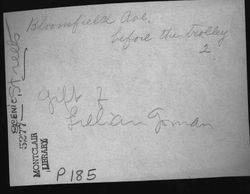 Bloomfield Ave.
before the trolley
2
Gift of
Lillian
SCENIC, Streets
5277
MONTCLAIR
LIBRARY
P185